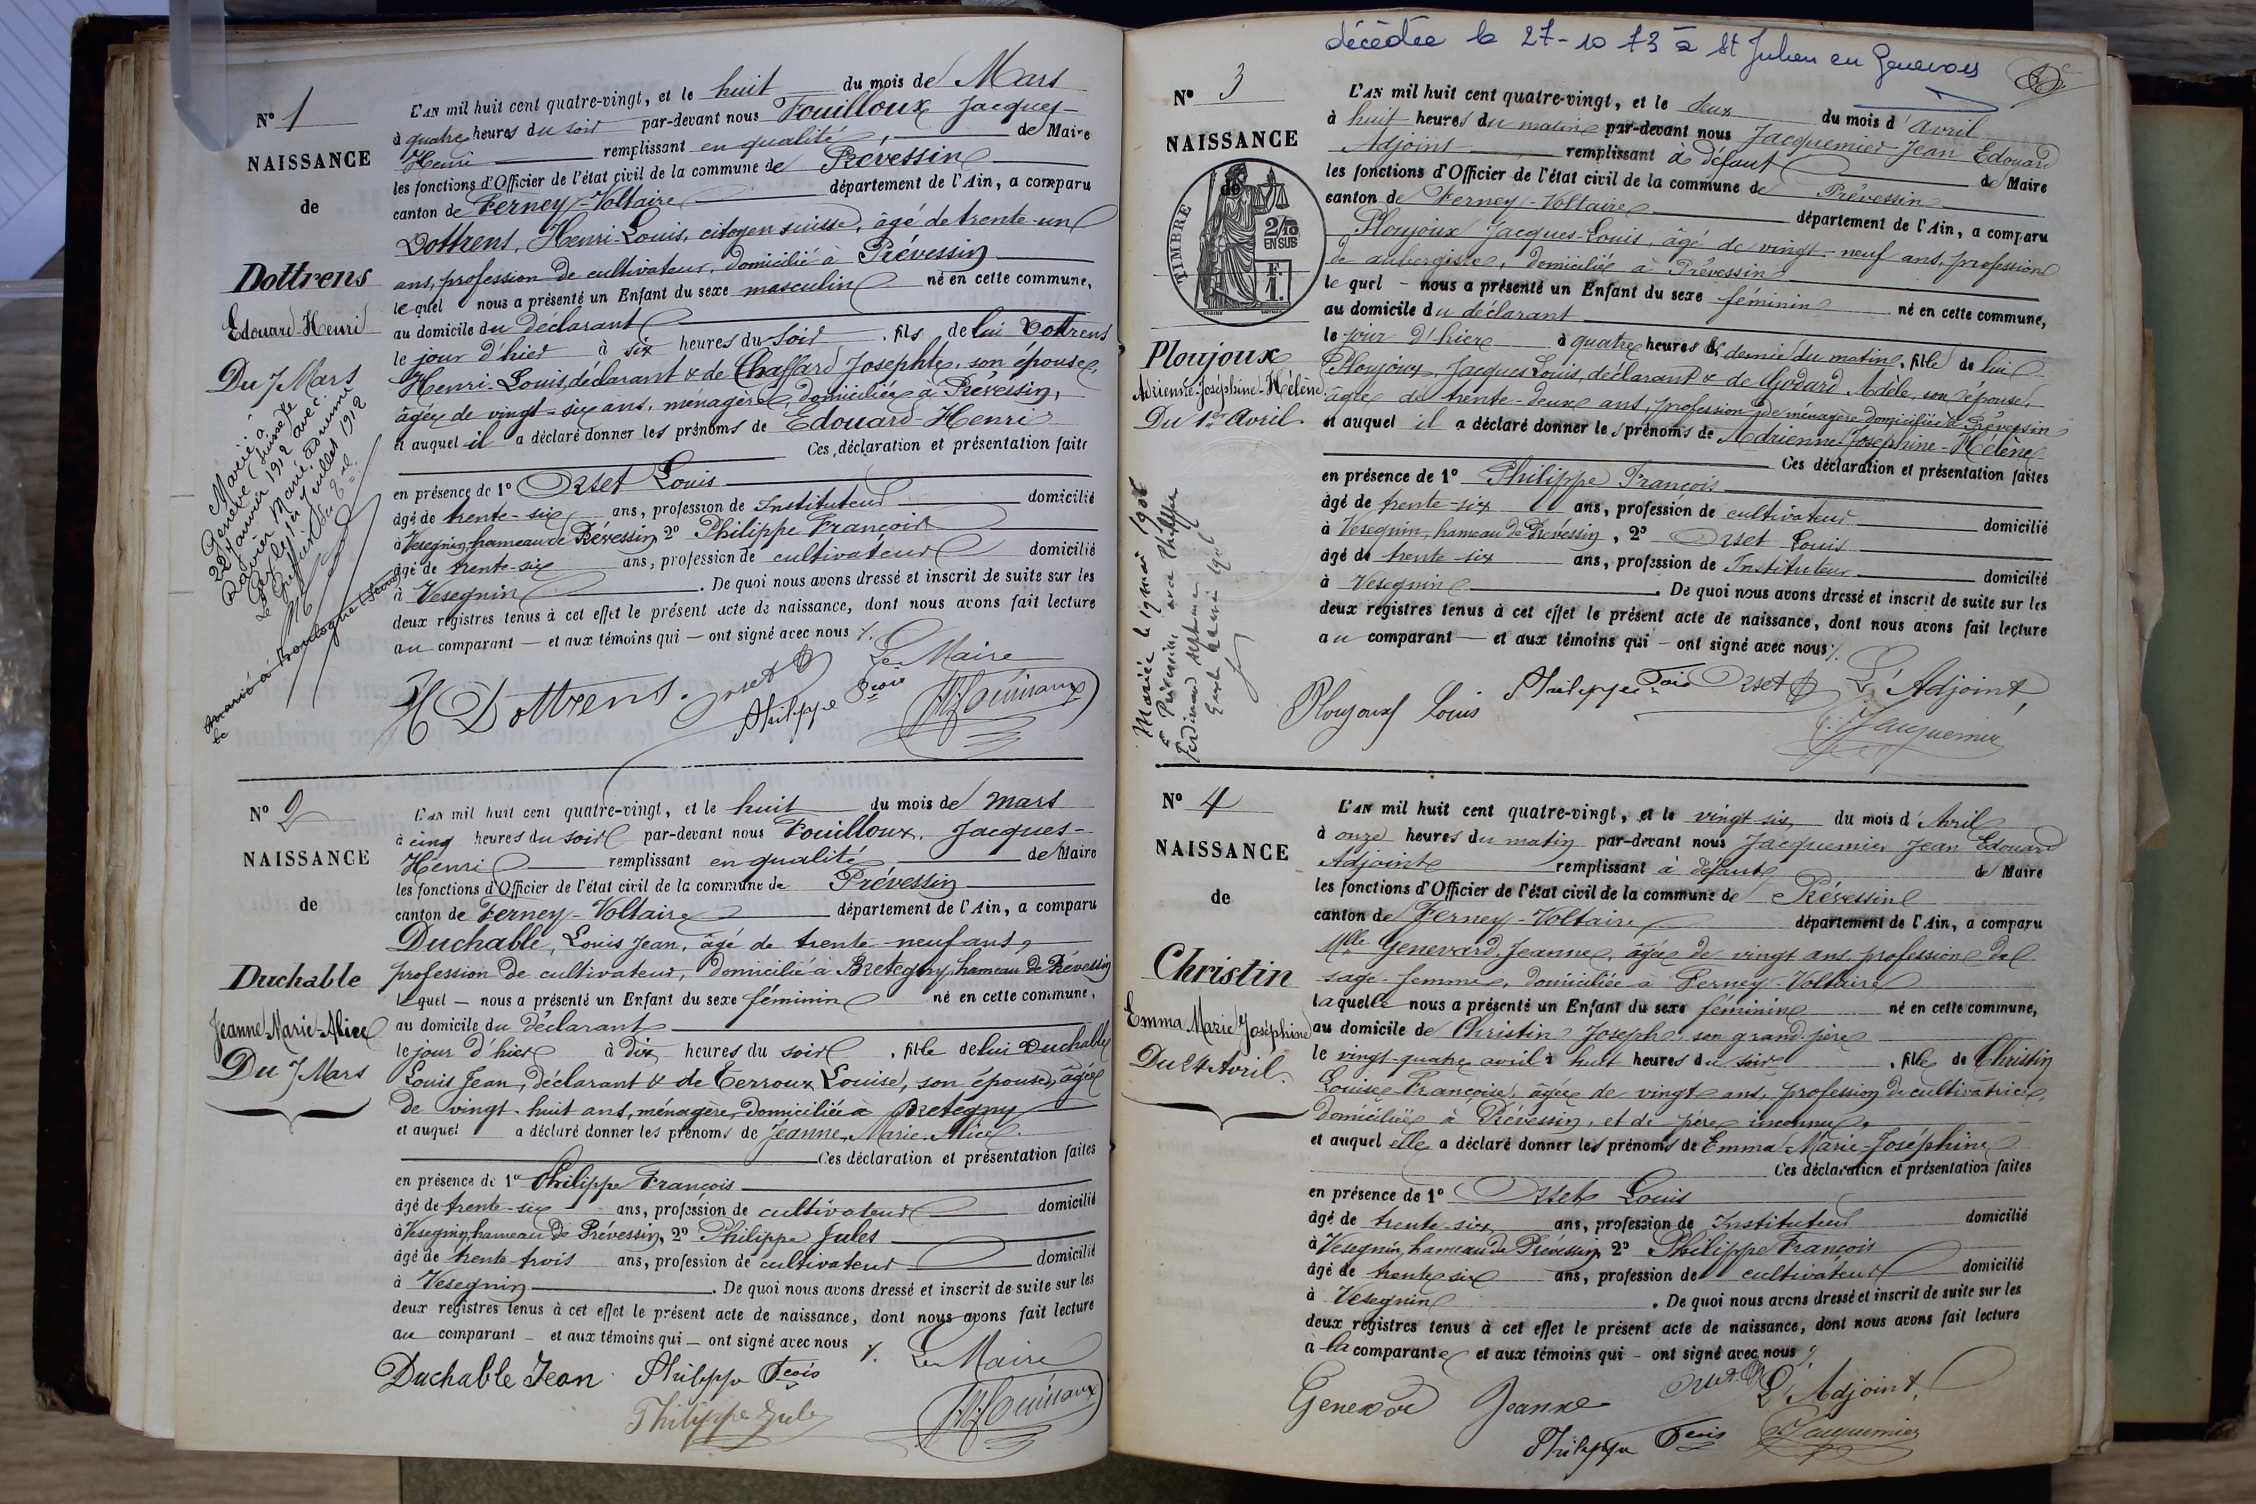 N° 1
NAISSANCE
de
Dottrens
Edouard-Henri
Du 7 Mars
Marié à
Genève (Suisse) le
22 Janvier 1912 avec
L'AN mil huit cent quatre-vingt, et le huit du mois de Mars
à quatre heures du soir par-devant nous Fouilloux Jacques-
Henri remplissant en qualité de Maire
les fonctions d'Officier de l'état civil de la commune de Prévessin
canton de Ferney-Voltaire département de l'Ain, a comparu
Dottrens, Henri-Louis, citoyen suisse, âgé de trente-un
ans, profession de cultivateur, domicilié à Prévessin
lequel nous a présenté un Enfant du sexe masculin né en cette commune,
au domicile du déclarant
le jour d'hier à six heures du soir, fils de lui Dottrens
Henri-Louis, déclarant & de Chaffard Josephte, son épouse,
âgée de vingt-six ans, ménagère, domiciliée à Prévessin,
et auquel il a déclaré donner les prénoms de Edouard-Henri
Ces déclaration et présentation faites
en présence de 1° Orset Louis
âgé de trente-six ans, profession de Instituteur domicilié
à Vesegnin, hameau de Prévessin, 2° Philippe François
âgé de trente-six ans, profession de cultivateur domicilié
à Vesegnin. De quoi nous avons dressé et inscrit de suite sur les
deux registres tenus à cet effet le présent acte de naissance, dont nous avons fait lecture
au comparant — et aux témoins qui — ont signé avec nous %.
Le Maire
H Dottrens. Orset Philippe Fcois
N° 2
NAISSANCE
de
Duchable
Jeanne-Marie-Alice
Du 7 Mars
L'AN mil huit cent quatre-vingt, et le huit du mois de Mars
à cinq heures du soir par-devant nous Fouilloux, Jacques-
Henri remplissant en qualité de Maire
les fonctions d'Officier de l'état civil de la commune de Prévessin
canton de Ferney-Voltaire département de l'Ain, a comparu
Duchable, Louis Jean, âgé de trente-neuf ans,
profession de cultivateur, domicilié à Bretegny, hameau de Prévessin
lequel — nous a présenté un Enfant du sexe féminin né en cette commune,
au domicile du déclarant
le jour d'hier à dix heures du soir, fille de lui Duchable
Louis Jean, déclarant & de Terroux Louise, son épouse, âgée
de vingt-huit ans, ménagère, domiciliée à Bretegny
et auquel a déclaré donner les prénoms de Jeanne-Marie-Alice.
Ces déclaration et présentation faites
en présence de 1° Philippe François
âgé de trente-six ans, profession de cultivateur domicilié
à Vesegnin, hameau de Prévessin, 2° Philippe Jules
âgé de trente-trois ans, profession de cultivateur domicilié
à Vesegnin. De quoi nous avons dressé et inscrit de suite sur les
deux registres tenus à cet effet le présent acte de naissance, dont nous avons fait lecture
au comparant — et aux témoins qui — ont signé avec nous %. Le Maire
Duchable Jean Philippe Fcois
Philippe Jules
décédée le 27-10 73 à St Julien en Genevois
N° 3
NAISSANCE
de
TIMBRE
2/10
EN SUS
F.
1.
Ploujoux
Adrienne-Joséphine-Hélène
Du 1er Avril
L'AN mil huit cent quatre-vingt, et le deux du mois d'avril
à huit heures du matin par-devant nous Jacquemier Jean Edouard
Adjoint remplissant à défaut de Maire
les fonctions d'Officier de l'état civil de la commune de Prévessin
canton de Ferney-Voltaire département de l'Ain, a comparu
Ploujoux Jacques-Louis, âgé de vingt-neuf ans, profession
de aubergiste, domicilié à Prévessin
lequel — nous a présenté un Enfant du sexe féminin né en cette commune,
au domicile du déclarant
le jour d'hier à quatre heures & demie du matin, fille de lui
Ploujoux, Jacques Louis, déclarant & de Godard Adèle, son épouse,
âgée de trente-deux ans, profession de ménagère domiciliée à Prévessin
et auquel il a déclaré donner les prénoms de Adrienne-Joséphine-Hélène
Ces déclaration et présentation faites
en présence de 1° Philippe François
âgé de trente-six ans, profession de cultivateur domicilié
à Vesegnin, hameau de Prévessin, 2° Orset Louis
âgé de trente-six ans, profession de Instituteur domicilié
à Vesegnin. De quoi nous avons dressé et inscrit de suite sur les
deux registres tenus à cet effet le présent acte de naissance, dont nous avons fait lecture
au comparant — et aux témoins qui — ont signé avec nous %.
Ploujoux Louis Philippe Fcois Orset L'Adjoint,
Jacquemier
N° 4
NAISSANCE
de
Christin
Emma Marie Joséphine
Du 24 Avril.
L'AN mil huit cent quatre-vingt, et le vingt-six du mois d'Avril
à onze heures du matin par-devant nous Jacquemier Jean Edouard
Adjoint remplissant à défaut de Maire
les fonctions d'Officier de l'état civil de la commune de Prévessin
canton de Ferney-Voltaire département de l'Ain, a comparu
Melle Genevard, Jeanne, âgée de vingt ans profession de
sage-femme, domiciliée à Ferney-Voltaire
laquelle nous a présenté un Enfant du sexe féminin né en cette commune,
au domicile de Christin Joseph, son grand-père
le vingt-quatre avril à huit heures du soir, fille de Christin
Louise-Françoise, âgée de vingt ans, profession de cultivatrice,
domiciliée à Prévessin, et de père inconnu,
et auquel elle a déclaré donner les prénoms de Emma Marie-Joséphine
Ces déclaration et présentation faites
en présence de 1° Orset Louis
âgé de trente-six ans, profession de Instituteur domicilié
à Vesegnin, hameau de Prévessin, 2° Philippe François
âgé de trente-six ans, profession de cultivateur domicilié
à Vesegnin. De quoi nous avons dressé et inscrit de suite sur les
deux registres tenus à cet effet le présent acte de naissance, dont nous avons fait lecture
à la comparante et aux témoins qui — ont signé avec nous %.
Jeanne Orset L'Adjoint,
Philippe Fcois Jacquemier